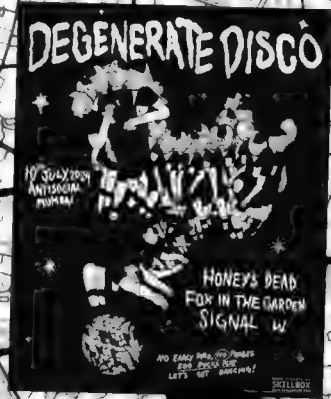 DEGENERATE DISCO
JULY, 2024
ANTISOCIAL
MUMBAI
HONEY'S DEAD
FOX IN THE GARDEN
SIGNAL W
NO EARLY BIRD, NO PHASES
500 BUCKS FLAT
LET'S GET DANCING!
SKILLBOX